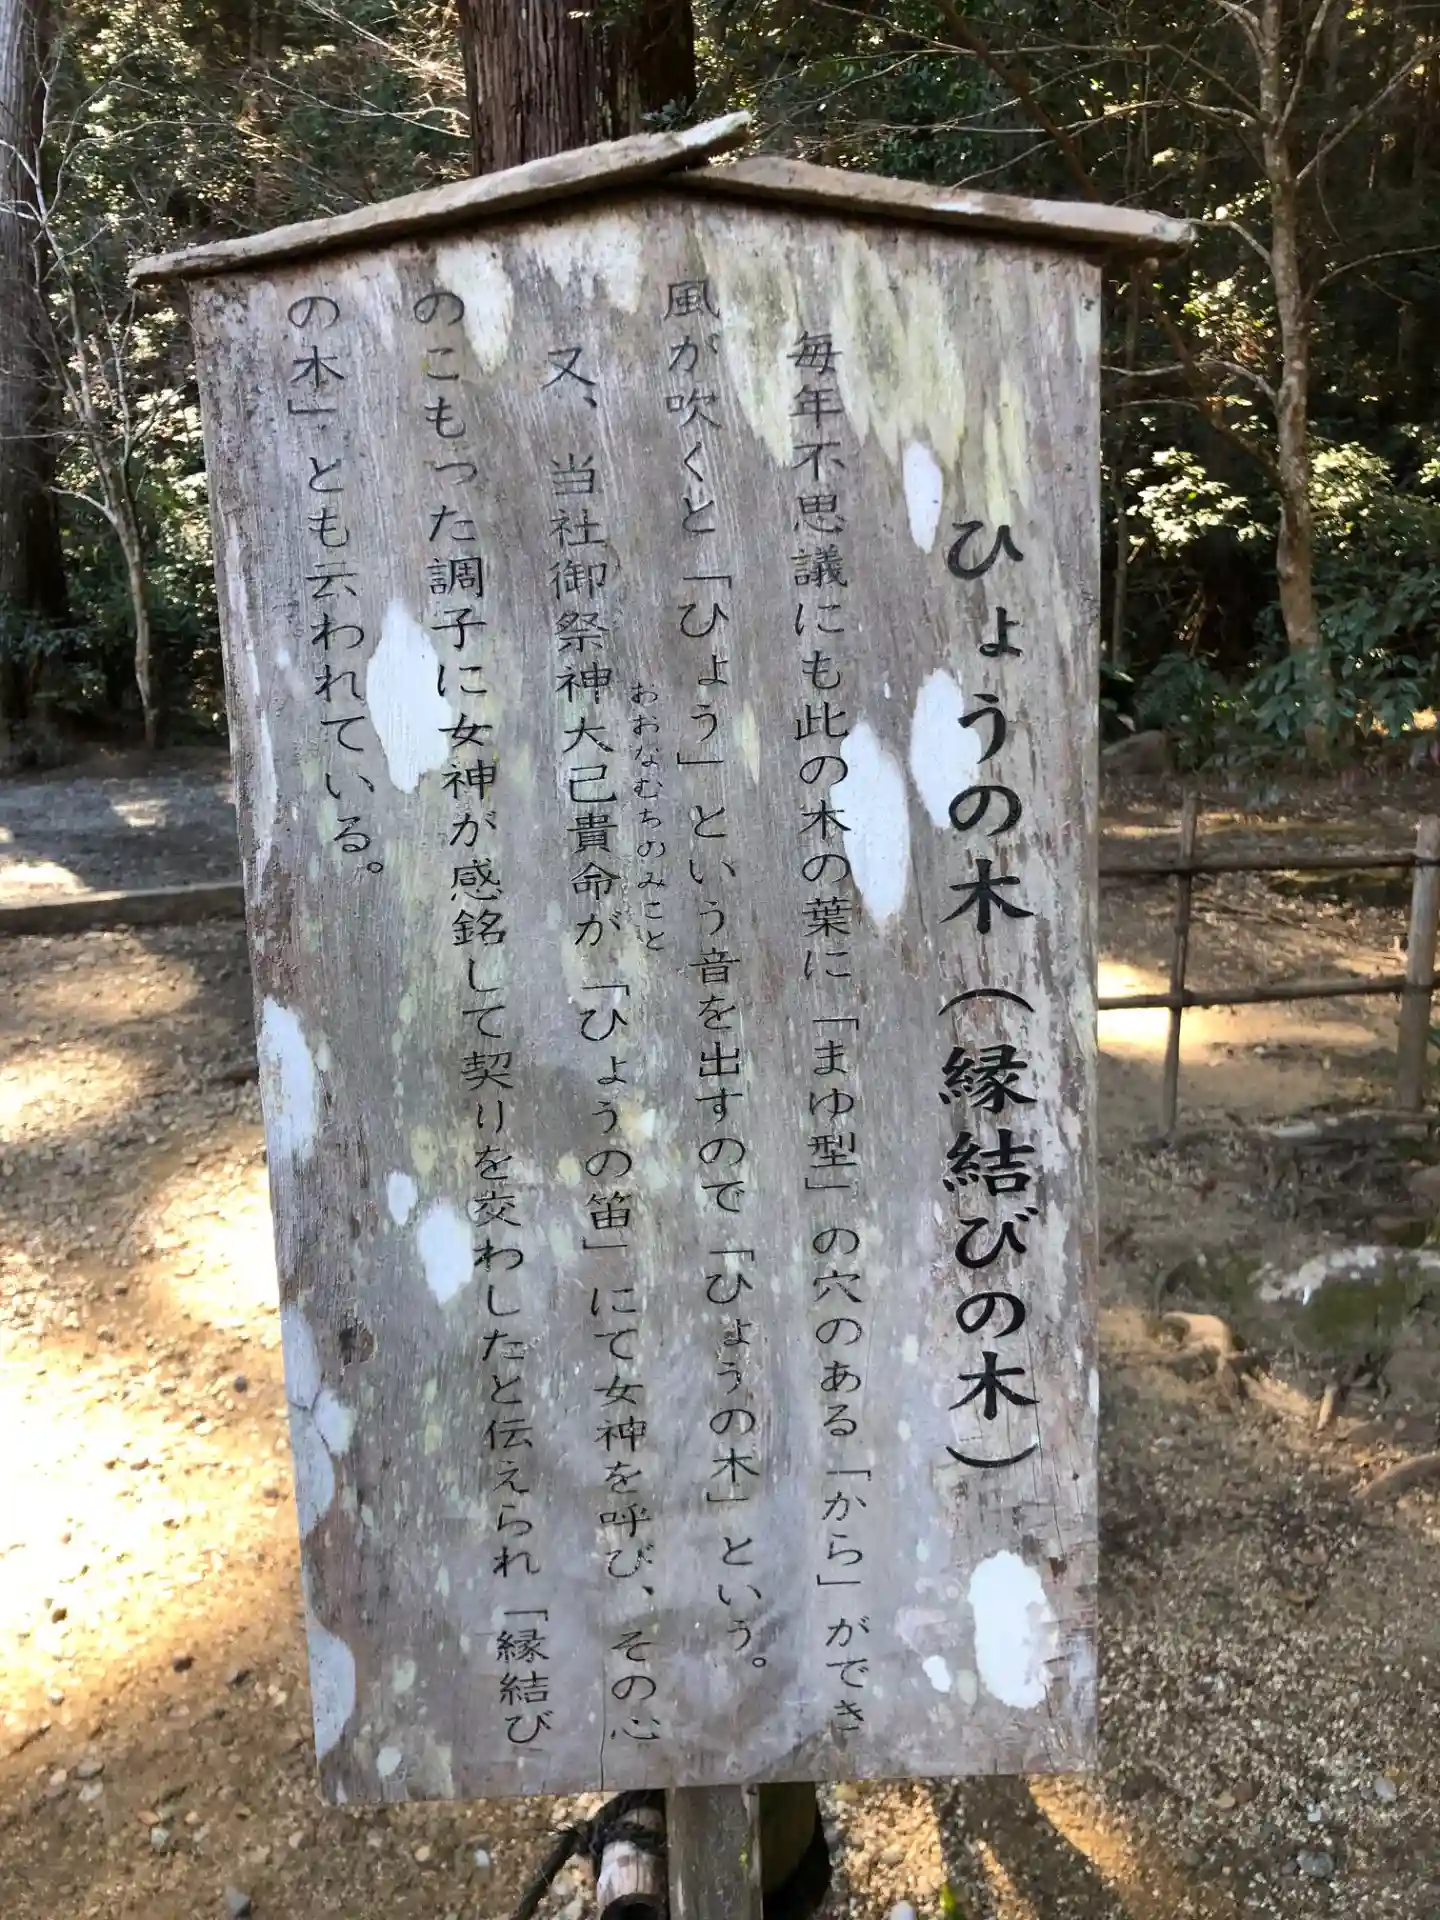 ひょうの木(縁結びの木)
毎年不思議にも此の木の葉に「まゆ型」の穴のある「から」ができ
風が吹くと「ひょう」という音を出すので「ひょうの木」という。
又、当社御祭神大己貴命が「ひょうの笛」にて女神を呼び、その心
おおなむちのみこと
のこもった調子に女神が感銘して契りを交わしたと伝えられ「縁結び
の木」とも云われている。